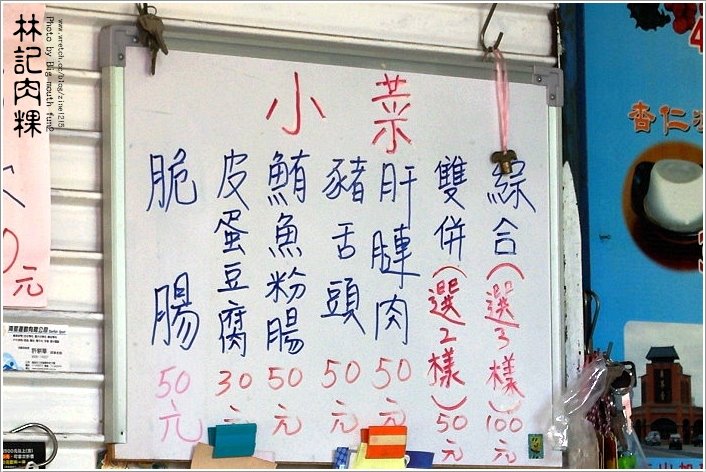 林記肉粿
Photo by Big mouth fund
www.wretch.cc/blog/zine1215
小菜
綜合(選3樣)100元
雙併(選2樣)50元
肝臉肉50元
豬舌頭50元
鮪魚粉腸50元
皮蛋豆腐30元
脆腸50元
元
杏仁